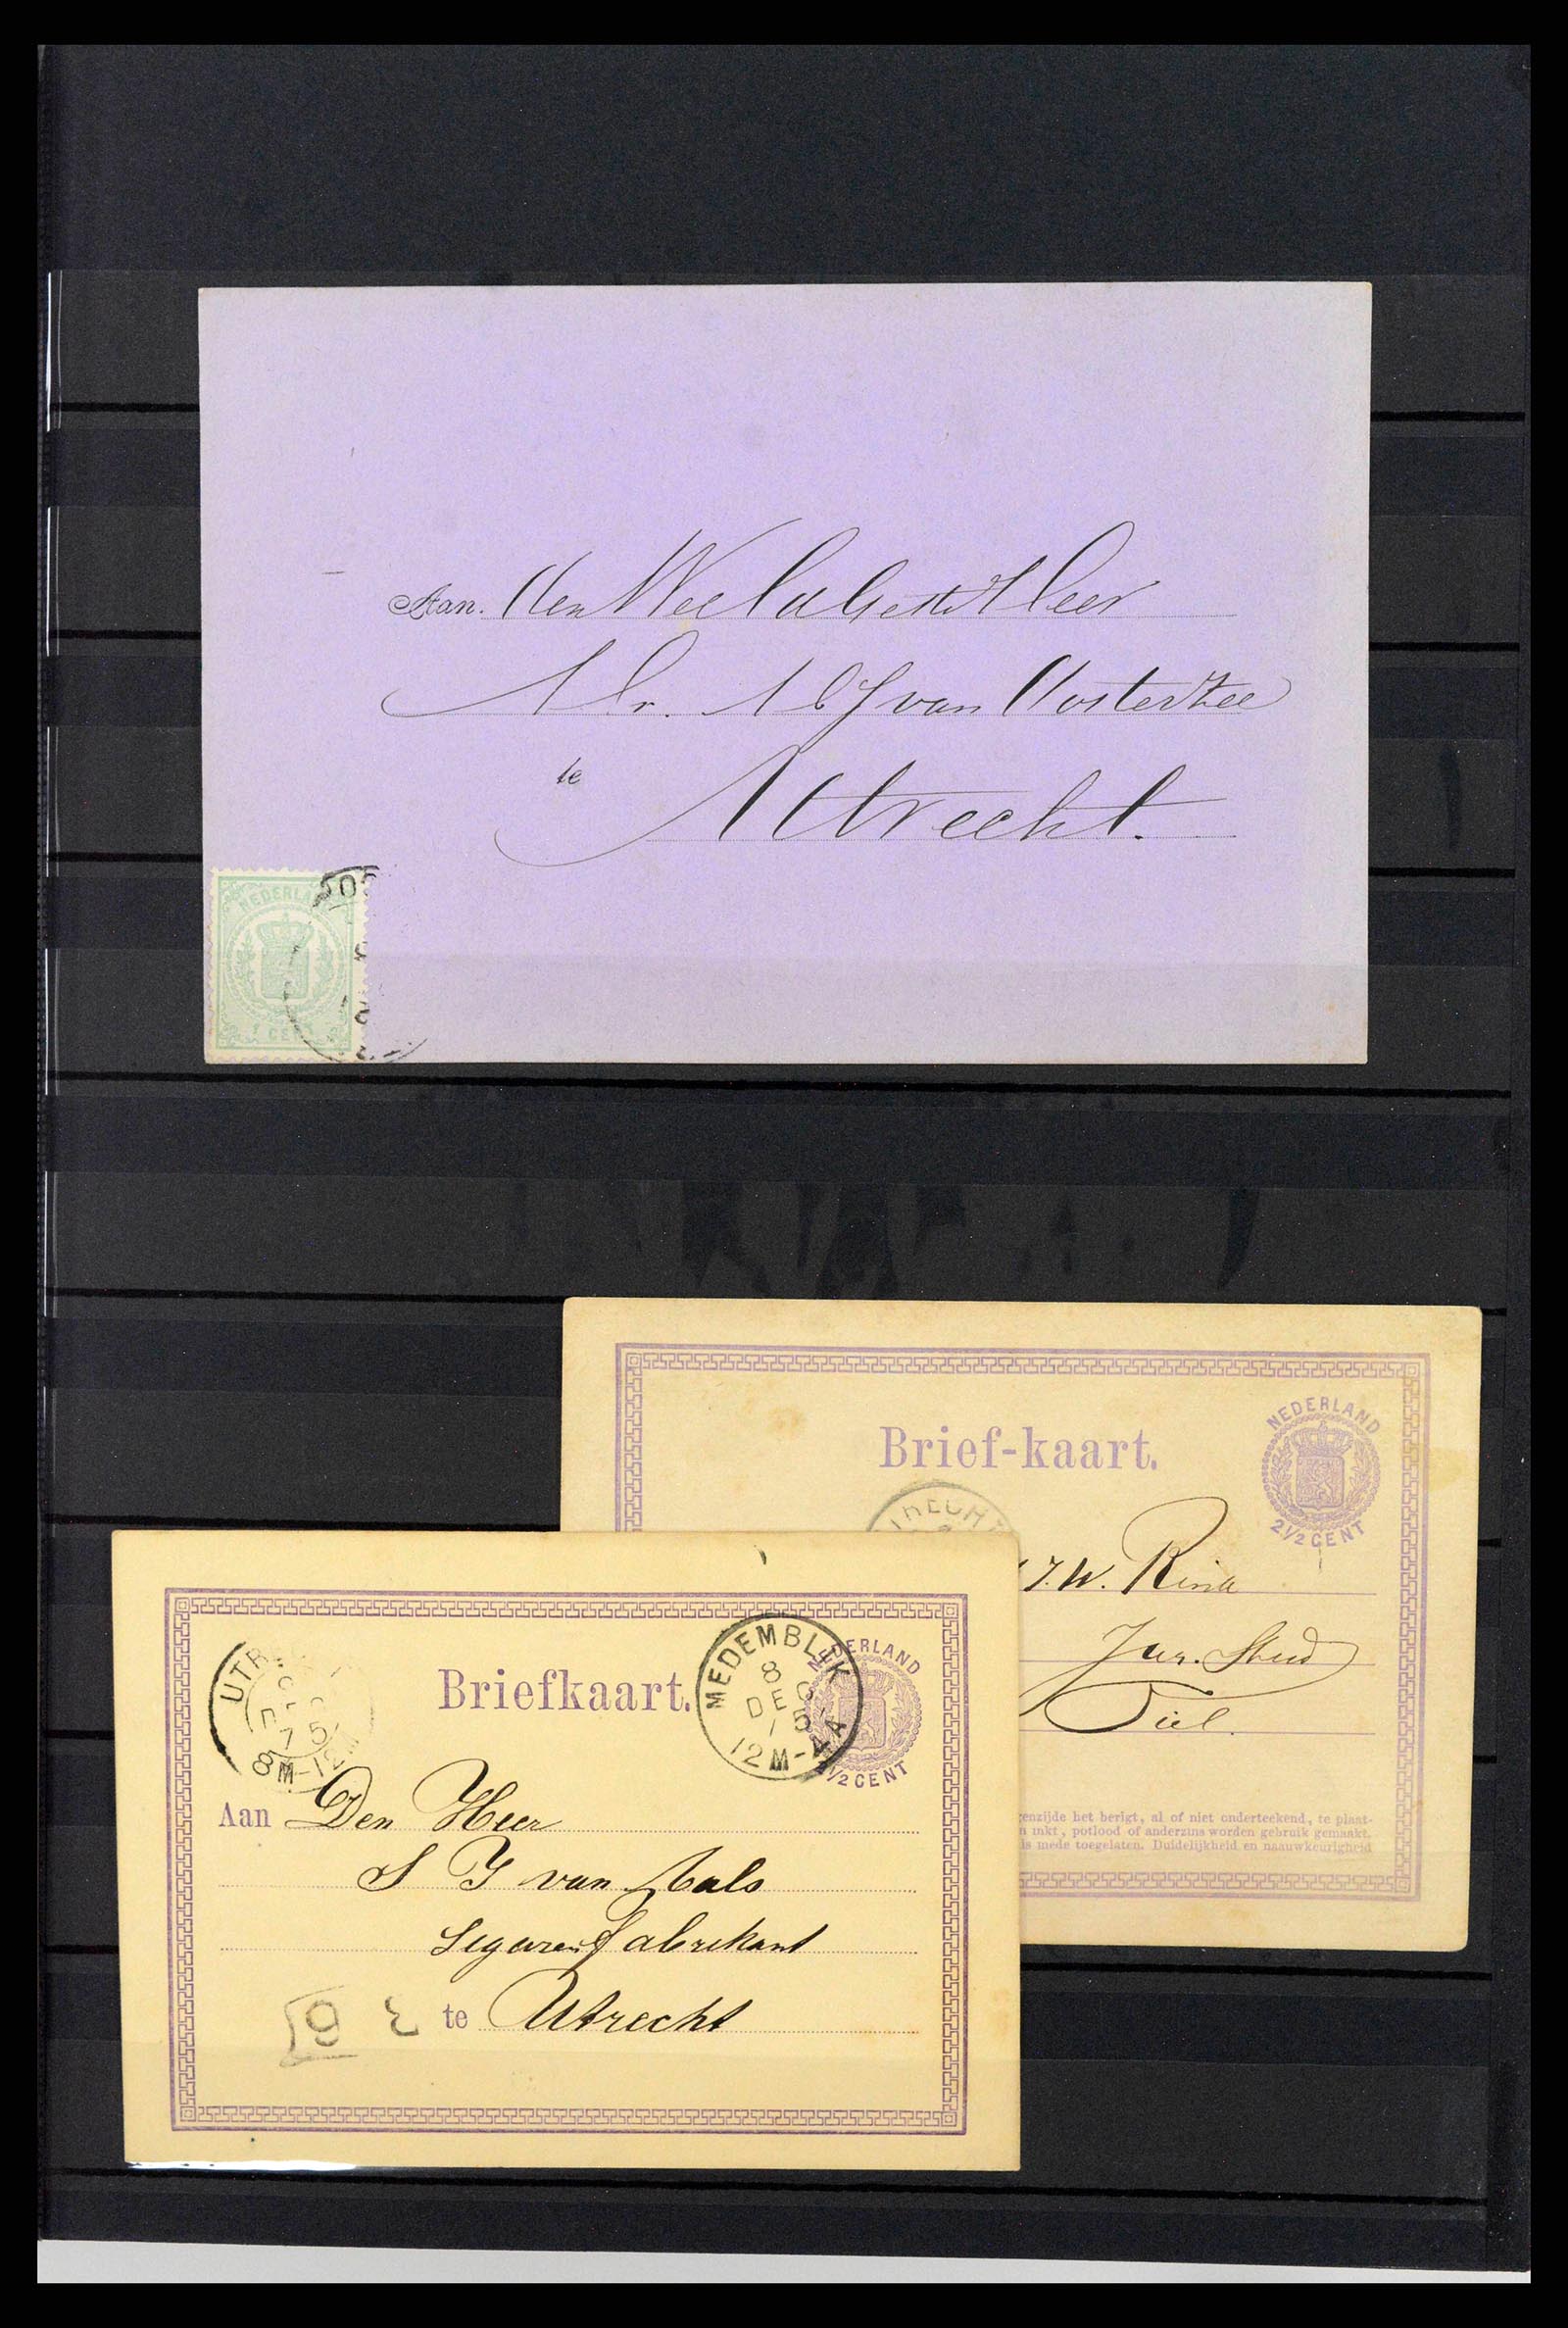 Aan. den WelEdGestr Heer
Mr. A C J van Oosterzee
te
Utrecht.
NEDERLAND
1 CENT
NEDERLAND
Brief-kaart.
2½ CENT
J. W. Rink
Jur. Stud
Tiel.
genzijde het berigt, al of niet onderteekend, te plaat-
n inkt, potlood of anderzins worden gebruik gemaakt.
is mede toegelaten. Duidelijkheid en naauwkeurigheid
UTR
8M-12
Briefkaart.
MEDEMBLIK
8
DE
12M-4A
NEDERLAND
½ CENT
Aan Den Heer
S J van Aals
Segarenfabrikant
te Utrecht